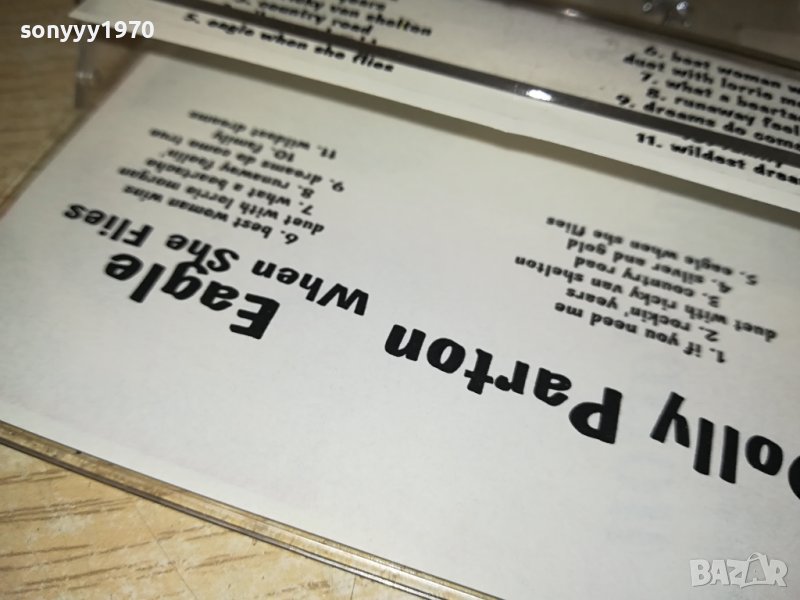 sonyyy1970
years
van shelton
country road
5. eagle when she flies
6. best woman
duet with lorrie
7. what a
8. runaway
9. dreams do
11. wildest
Dolly Parton
Eagle
When She Flies
1. if you need me
2. rockin' years
duet with ricky van shelton
3. country road
4. silver and gold
5. eagle when she flies
6. best woman wins
duet with lorrie morgan
7. what a heartache
8. runaway feelin'
9. dreams do come true
10. family
11. wildest dreams
BAZAR